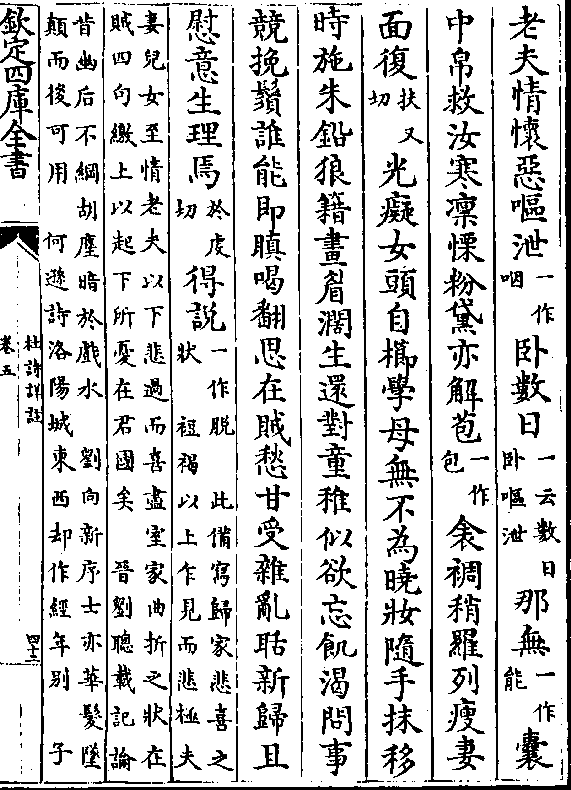 老夫情懷惡嘔泄一作咽卧數日一云數日卧嘔泄那無一作能囊
中帛救汝寒凛慄粉黛亦解苞一作包衾裯稍羅列瘦妻
面復扶又切光癡女頭自櫛學母無不為曉妝隨手抹移
時施朱鉛狼籍畫眉濶生還對童稚似欲忘飢渴問事
競挽鬚誰能即瞋喝翻思在賊愁甘受雜亂聒新歸且
慰意生理焉於虔切得說一作脱 此備寫歸家悲喜之狀 裋褐以上乍見而悲極夫
妻兒女至情老夫以下悲過而喜盡室家曲折之狀在
賊四句繳上以起下所憂在君國矣 晉劉聰載記論
昔幽后不綱胡塵暗於戲水 劉向新序士亦華髮墜
顛而後可用 何遜詩洛陽城東西却作經年別 子
欽定四庫全書
杜詩詳註
卷五